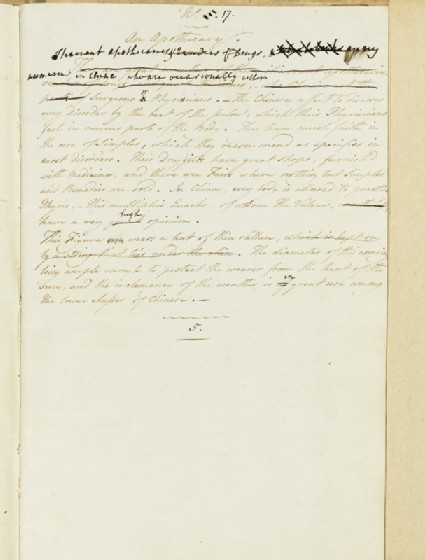 No. 17.
An Apothecary.
Itinerant Apothecaries & Venders of Drugs, are very
numerous in China, who are occasionally either
Surgeons & Physicians. — The Chinese affect to discover
every disorder by the beat of the pulse, which their Physicians
feel in various parts of the body. They have much faith in
the use of Simples, which they recommend as specifics in
most disorders. Their Druggists have great shops, furnished
with Medicines, and there are Fairs where nothing but Simples
and Remedies are sold. In China, every body is allowed to practise
Physic. This multiplies Quacks, of whom the Vulgar
have a very high opinion.
This Figure wears a hat of thin rattan, which is kept on
by a string that ties under the chin. The diameter of this covering
being ample enough to protect the wearer from the heat of the
Sun, and the inclemency of the weather is of great use among
the lower class of Chinese. —
5.